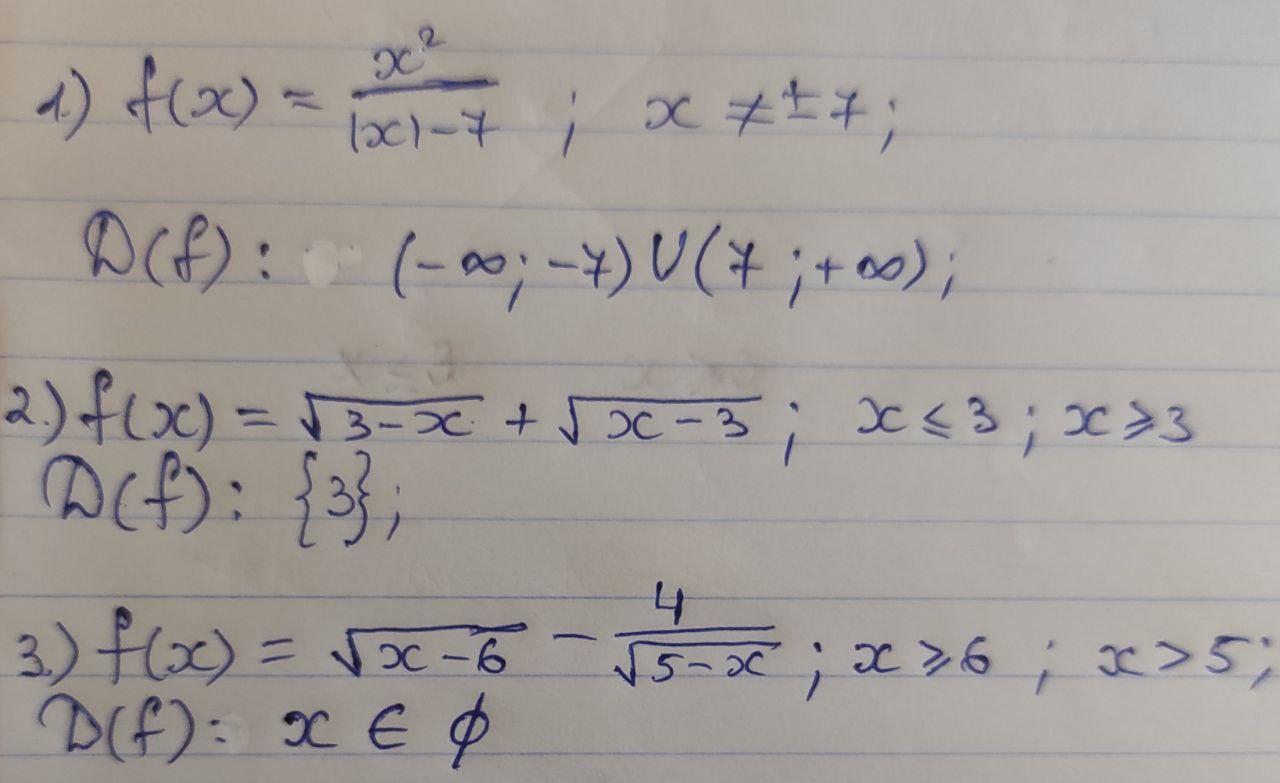 1.) f(x) = x²/(|x|-7) ; x ≠ ±7;
D(f): (-∞; -7) ∪ (7 ; +∞);
2.) f(x) = √(3-x) + √(x-3) ; x ≤ 3 ; x ≥ 3
D(f): {3};
3.) f(x) = √(x-6) - 4/√(5-x) ; x ≥ 6 ; x > 5;
D(f): x ∈ ∅